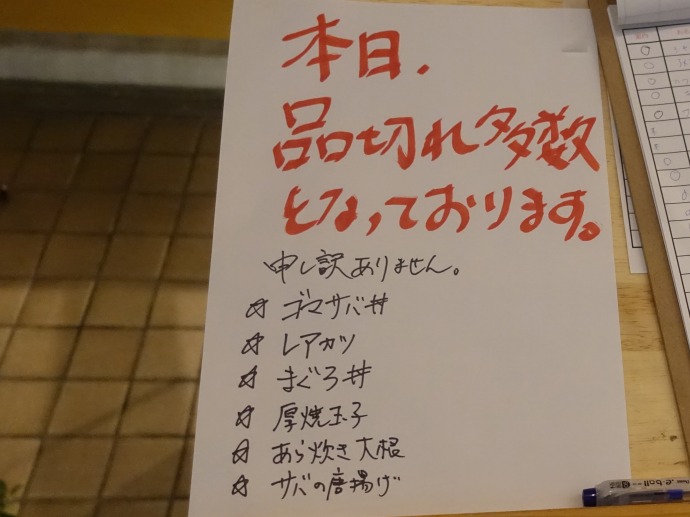 本日、
品切れ多数
となっております。
申し訳ありません。
☆ ゴマサバ丼
☆ レアカツ
☆ まぐろ丼
☆ 厚焼玉子
☆ あら炊き大根
☆ サバの唐揚げ
e-ball